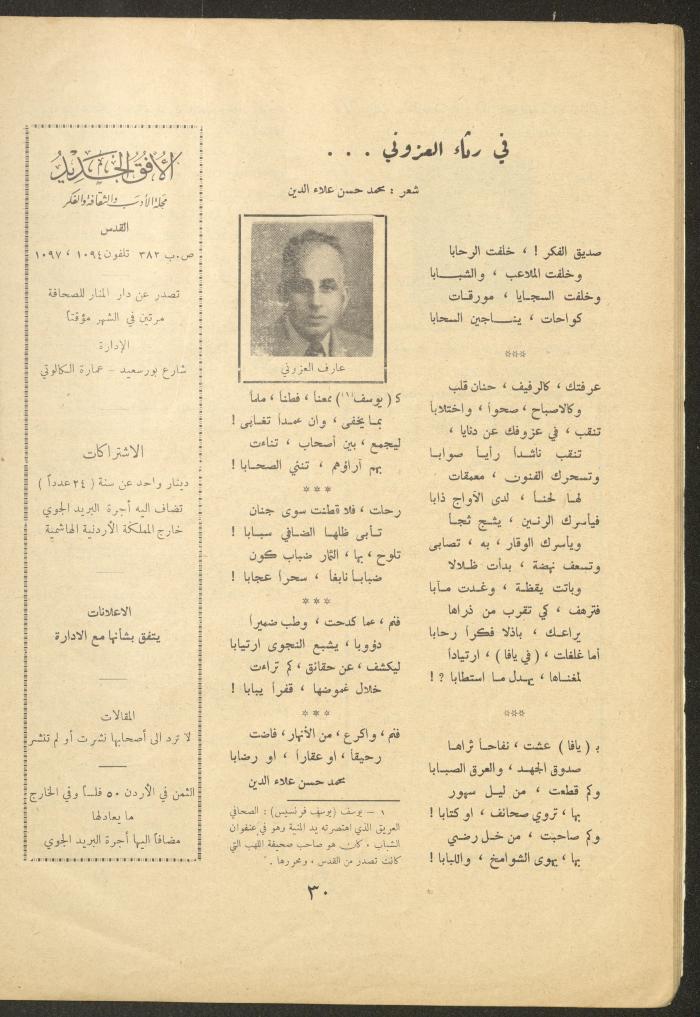 في رثاء العزوني . . .
شعر : محمد حسن علاء الدين
صديق الفكر ! ، خلفت الرحابا
وخلفت الملاعب ، والشبـــابا
وخلفت السجـايا ، مورقـات
كواحات ، ينـــاجين السحابا
***
عرفتك ، كالرفيف ، حنان قلب
وكالاصباح ، صحواً ، واختلابا
تنقب ، في عزوفك عن دنايا ،
تنقب ناشـداً رأيـاً صوابـا
وتسحرك الفنون ، معمقات
لهـا لحنـاً ، لدى الأواج ذابا
فيأسرك الرنـين ، يشـج ثجـاً
ويأسرك الوقار ، به ، تصابى
وتسعف نهضة ، بدأت ظـلالا
وباتت يقظـة ، وغـدت مـآبا
فترهف ، كي تقرب من ذراها
يراعـك ، باذلا فكـراً رحابا
أما غلغلت ، ( في يافا ) ، ارتيـاداً
لمغنـاها ، يهـدل مـا استطابا ? !
***
بـ ( يافا ) عشت ، نفاحـاً ثراهـا
صدوق الجهـد ، والعرق الصبـابا
وكم قطعت ، من ليـل سهور
بهـا ، تروي صحائف ، او كتابا !
وكم صاحبت ، من خـل رضـي
بهـا ، يهوى الشوامخ ، واللبابا !
عارف العزوني
كـ ( يوسف (١) ) ممعناً ، فطناً ، ملماً
بمـا يخفى ، وان عمـداً تغـابى !
ليجمع ، بين أصحاب ، تناءت
بهم آراؤهم ، تنني الصحـابا !
***
رحلت ، فلا قطنت سوى جنان
تـأبى ظلهـا الضـافي سبـابا !
تلوح ، بها ، الثمار ضباب كون
ضبابـاً نابغاً ، سحراً عجابا !
***
فنم ، عما كدحت ، وطب ضميراً
دؤوبـا ، يشبع النجوى ارتيابا
ليكشف ، عن حقائق ، كم تراءت
خلال غموضها ، قفراً يبابا !
***
فنم ، واكرع ، من الأنهار ، فاضت
رحيقـاً ، او عقاراً ، او رضابا
محمد حسن علاء الدين
١ – يوسف (يوسف فرنسيس) : الصحافي
العريق الذي اهتصرته يد المنية وهو في عنفوان
الشباب . كان هو صاحب صحيفة اللهب التي
كانت تصدر من القدس ، ومحررها .
الأفق الجديد
مجلة الأدب والثقافة والفكر
القدس
ص.ب ٣٨٢ تلفون ١٠٩٤ ، ١٠٩٧
تصدر عن دار المنار للصحافة
مرتين في الشهر مؤقتاً
الإدارة
شارع بورسعيد – عمارة الكالوتي
الاشتراكات
دينار واحد عن سنة ( ٢٤ عدداً )
تضاف اليه أجرة البريد الجوي
خارج المملكة الأردنية الهاشمية
الاعلانات
يتفق بشأنها مع الادارة
المقالات
لا ترد الى أصحابها نشرت أو لم تنشر
الثمن في الأردن ٥٠ فلسـاً وفي الخارج
ما يعادلها
مضافاً اليها أجرة البريد الجوي
٣٠